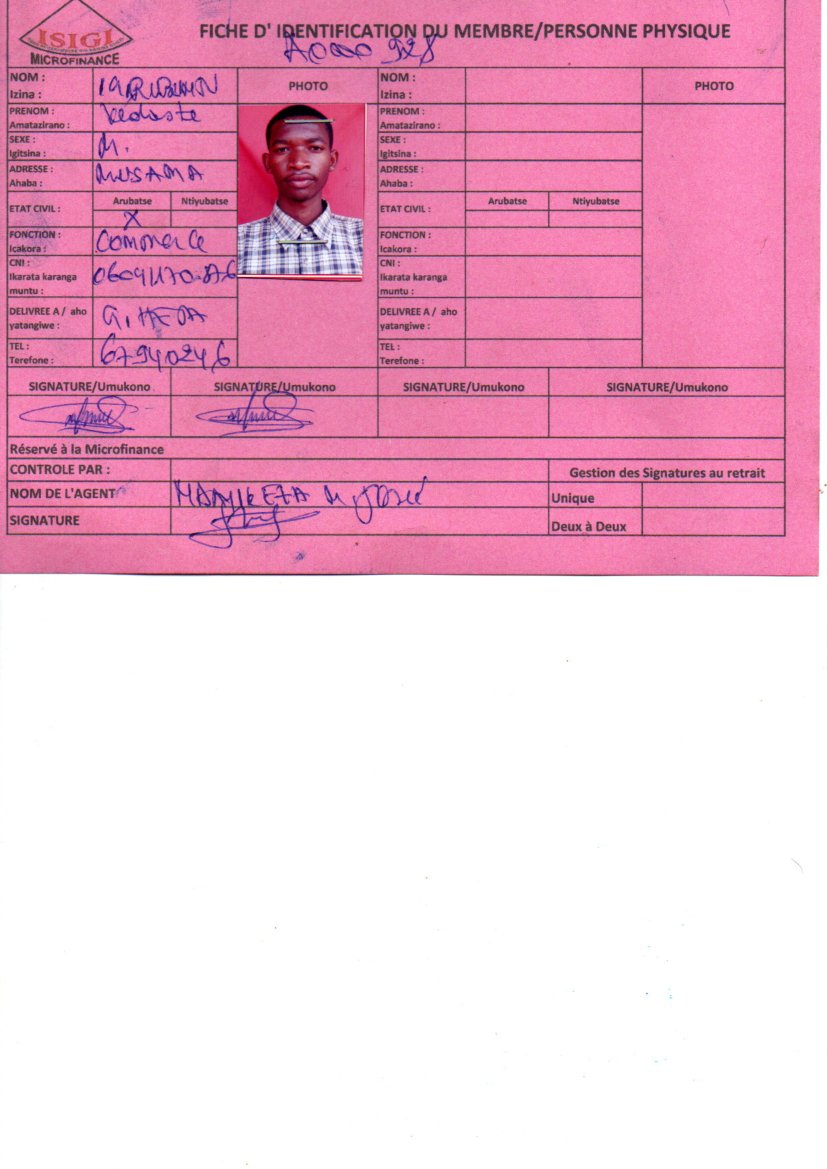 ISIGI
MICROFINANCE
FICHE D' IDENTIFICATION DU MEMBRE/PERSONNE PHYSIQUE
A0000 928
NOM :
Izina :
PHOTO
NOM :
Izina :
PHOTO
PRENOM :
Amatazirano :
Vedaste
PRENOM :
Amatazirano :
SEXE :
Igitsina :
M.
SEXE :
Igitsina :
ADRESSE :
Ahaba :
MUSAMA
ADRESSE :
Ahaba :
ETAT CIVIL :
Arubatse
Ntiyubatse
X
ETAT CIVIL :
Arubatse
Ntiyubatse
FONCTION :
Icakora :
Commerce
FONCTION :
Icakora :
CNI :
Ikarata karanga
muntu :
CNI :
Ikarata karanga
muntu :
DELIVREE A / aho
yatangiwe :
GITEGA
DELIVREE A / aho
yatangiwe :
TEL :
Terefone :
67940246
TEL :
Terefone :
SIGNATURE/Umukono
SIGNATURE/Umukono
SIGNATURE/Umukono
SIGNATURE/Umukono
Réservé à la Microfinance
CONTROLE PAR :
Gestion des Signatures au retrait
NOM DE L'AGENT
Unique
SIGNATURE
Deux à Deux